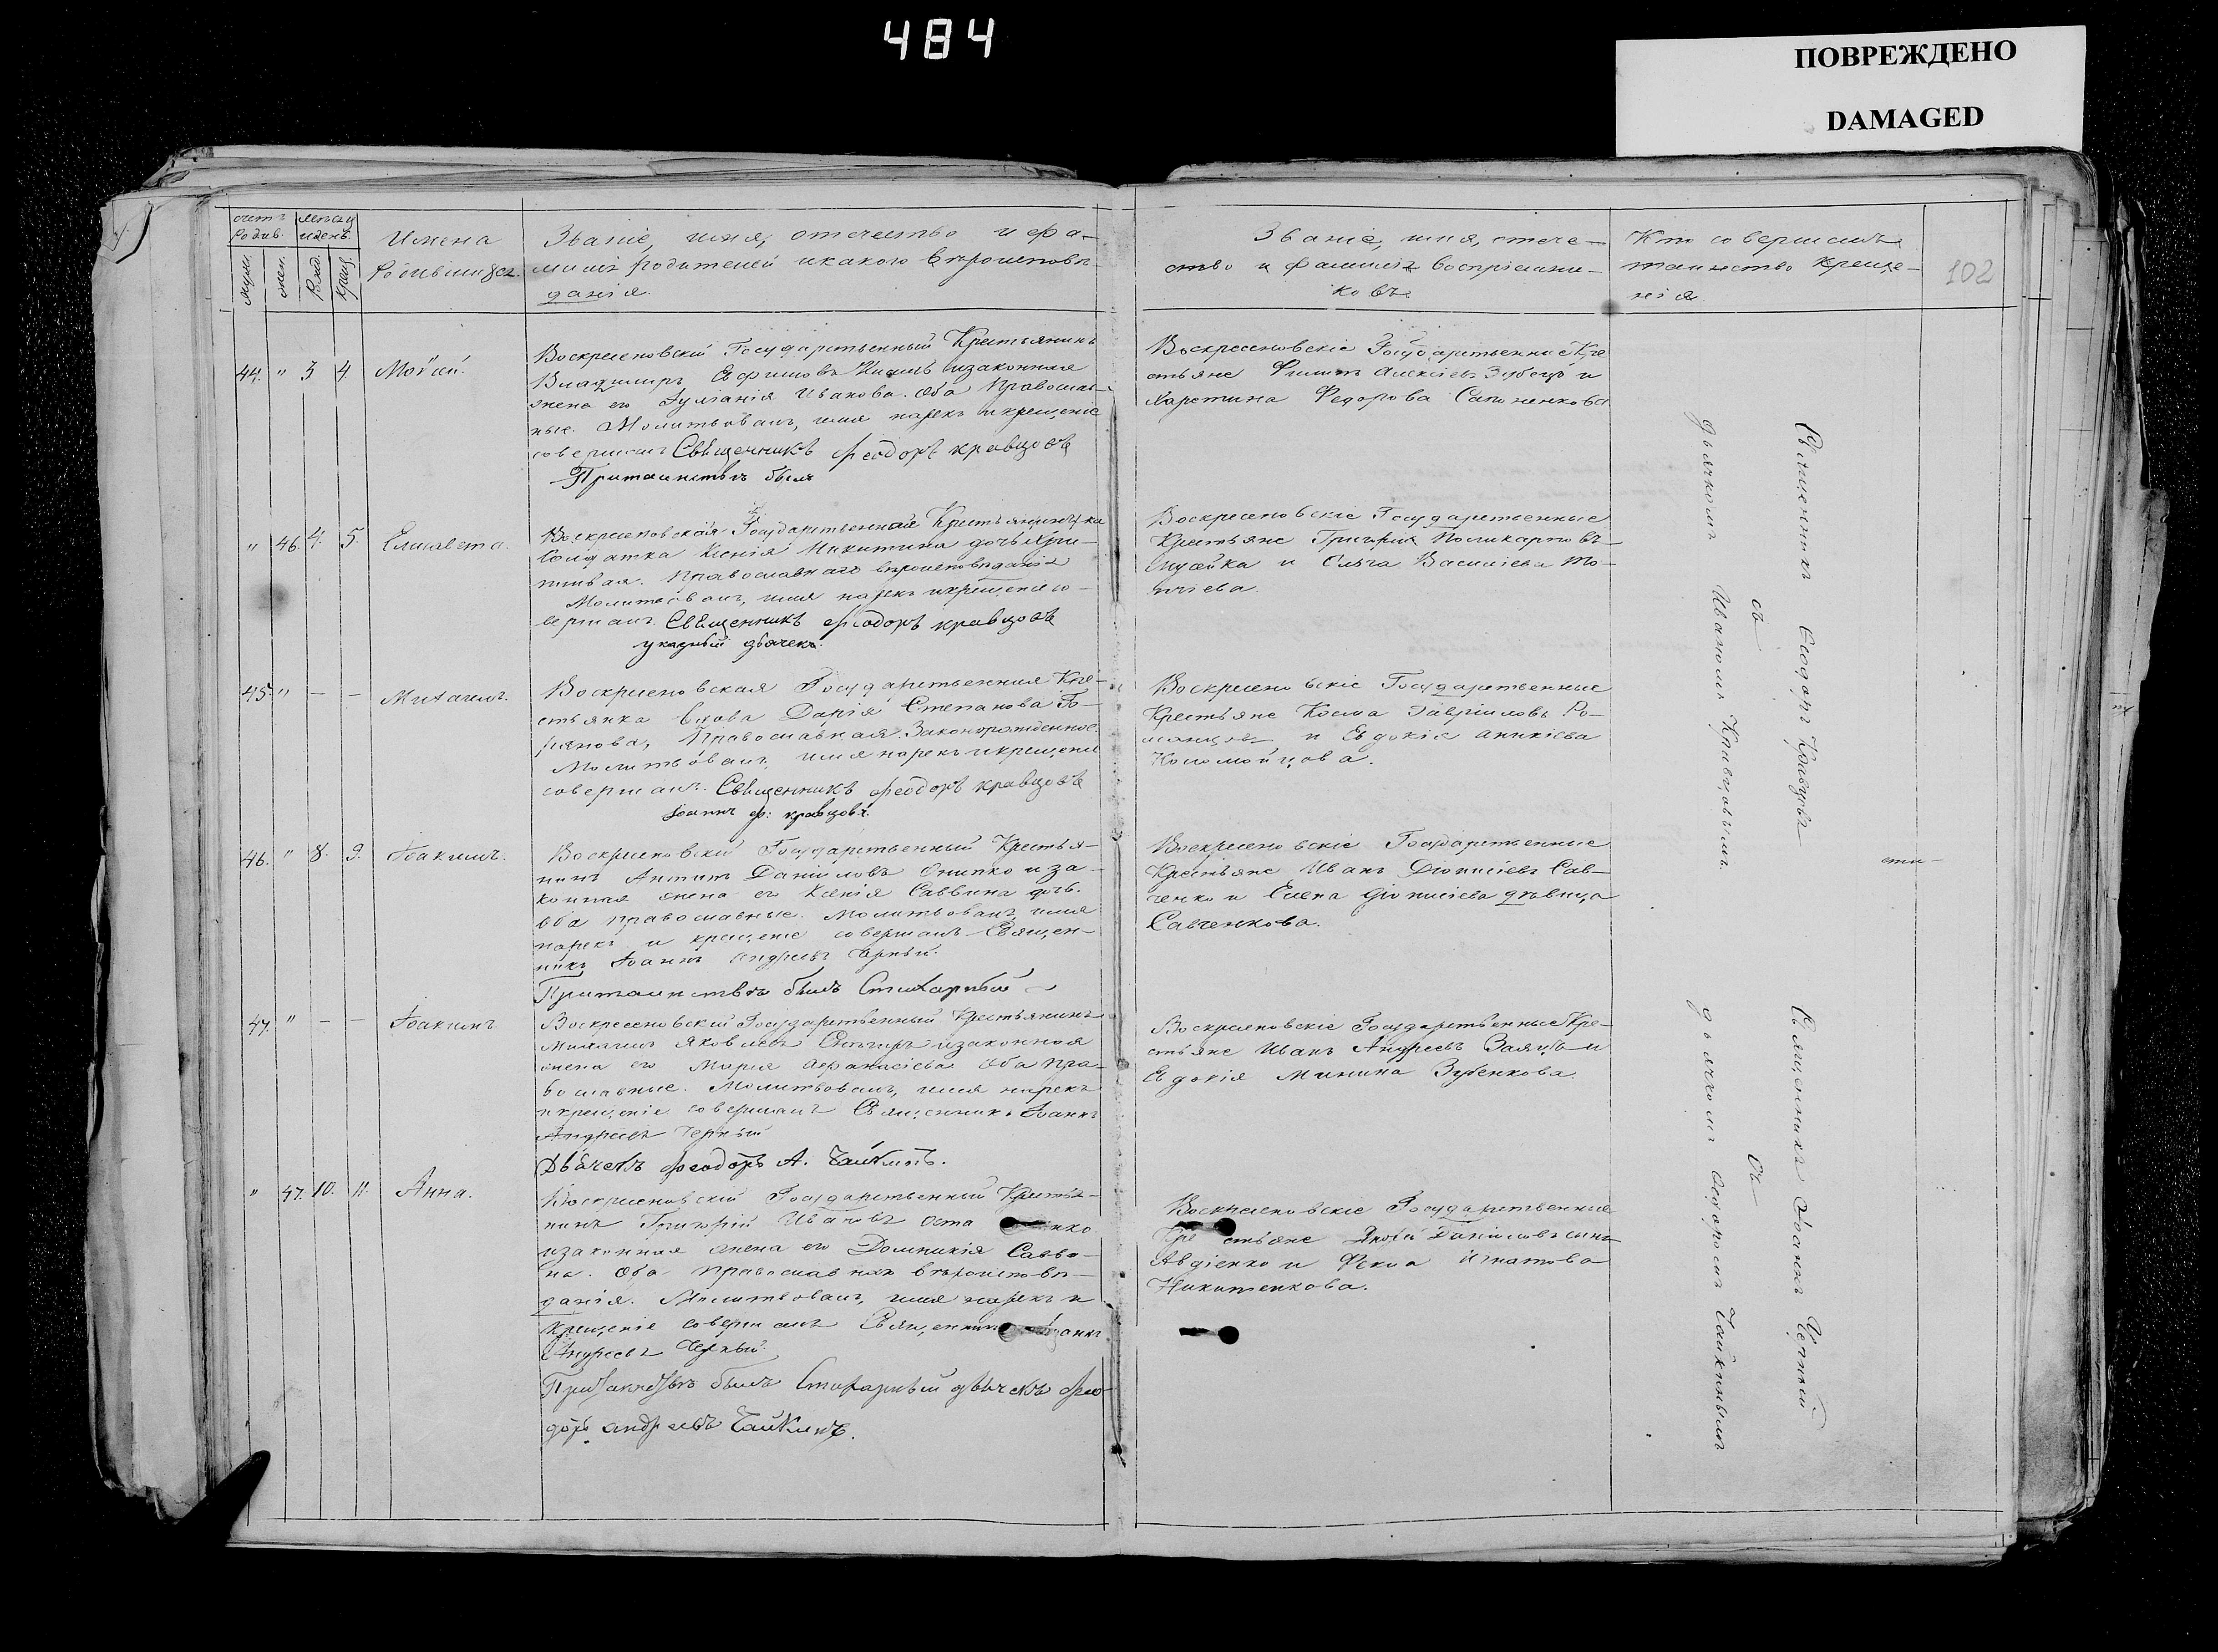 484
ПОВРЕЖДЕНО
DAMAGED
счетъ родив.
мѣсяц и день.
муж.
жен.
рожд.
крещ.
Имена
родившихся.
Званіе, имя, отечество и фа-
милія родителей и какого вѣроисповѣ-
данія.
Званіе, имя, отече-
ство и фамилія воспріемни-
ковъ
Кто совершалъ
таинство креще-
нія
102
44. " 3 4. Моѵсей.
Воскресеновскій Государственный Крестьянинъ
Владимиръ Евфимовъ и законная
жена его Іуліанія Иванова. Оба Православ-
ные. Молитвовалъ, имя нарекъ и крещеніе
совершалъ Священникъ Феодоръ Кравцовъ
При таинствѣ былъ
Воскресеновскіе Государственные Кре
стьяне Филипъ Алексіевъ Зубецъ и
Харетина Федорова Сапоненкова
" 46. 4. 5 Елисавета.
Воскресеновская Государственная Крестьянка
Солдатка Ксенія Никитина дочь
Православнаго вѣроисповѣданія
Молитвовалъ, имя нарекъ и крещеніе со-
вершалъ. Священникъ Феодоръ Кравцовъ
указный дьячекъ.
Воскресеновскіе Государственные
Крестьяне Григорій Поликарповъ
и Ольга Василіева То-
45. " - - Михаилъ.
Воскресеновская Государственная Кре-
стьянка вдова Дарія Степанова Го-
рянова, Православная. Законорожденное.
Молитвовалъ, имя нарекъ и крещеніе
совершалъ. Священникъ Феодоръ Кравцовъ
Іоаннъ Ф: Кравцовъ.
Воскресеновскіе Государственные
Крестьяне Косма Гавриловъ Ро-
манцовъ и Евдокія Аникіева
Коломойцова.
46. " 8. 9. Іоакимъ.
Воскресеновскій Государственный Крестья-
нинъ Антипъ Даниловъ Онипко и за-
конная жена его Ксенія Саввина дочь.
Оба православные. Молитвовалъ, имя
нарекъ и крещеніе совершалъ Священ-
никъ Іоаннъ Андреевъ Черный.
При таинствѣ былъ Стихарный
Воскресеновскіе Государственные
Крестьяне Иванъ Діонисіевъ Сав-
ченко и Елена Діонисіева дѣвица
Савченкова.
47. " - - Іоакимъ
Воскресеновскій Государственный Крестьянинъ
Михаилъ Яковлевъ и законная
жена его Марія Афанасіева Оба Пра-
вославные. Молитвовалъ, имя нарекъ
и крещеніе совершалъ Священникъ Іоаннъ
Андреевъ Черный
Дьячекъ Феодоръ А. Чайкинъ.
Воскресеновскіе Государственные Кре-
стьяне Иванъ Андреевъ Заяцъ и
Евдокія Минина Зубенкова.
" 47. 10. 11. Анна.
Воскресеновскій Государственный Крестья-
нинъ Григорій Ивановъ Оста нко
и законная жена его Домникія Савви-
на. Оба православнаго вѣроисповѣ-
данія. Молитвовалъ, имя нарекъ и
крещеніе совершалъ Священникъ Іоаннъ
Андреевъ Черный.
При таинствѣ былъ Стихарный дьячекъ Фео-
доръ Андреевъ Чайкинъ.
Воскресеновскіе Государственные
Кре стьяне Яковъ Даниловъ сынъ
Авдіенко и Фекла Игнатова
Никитенкова.
Священникъ Феодоръ Кравцовъ
съ
дьячкомъ Иваномъ Кравцовымъ.
Священникъ Іоаннъ Черный
съ
дьячкомъ Феодоромъ Чайкинымъ